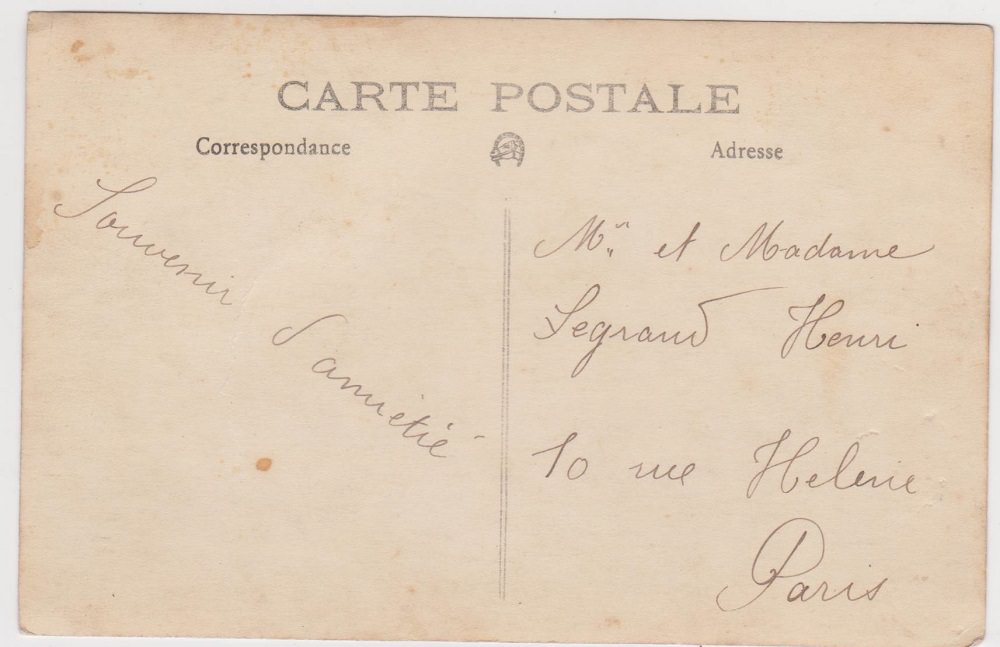 CARTE POSTALE
Correspondance
Adresse
Souvenir
d'amietié
Mr et Madame
Legrand Henri
10 rue Helene
Paris